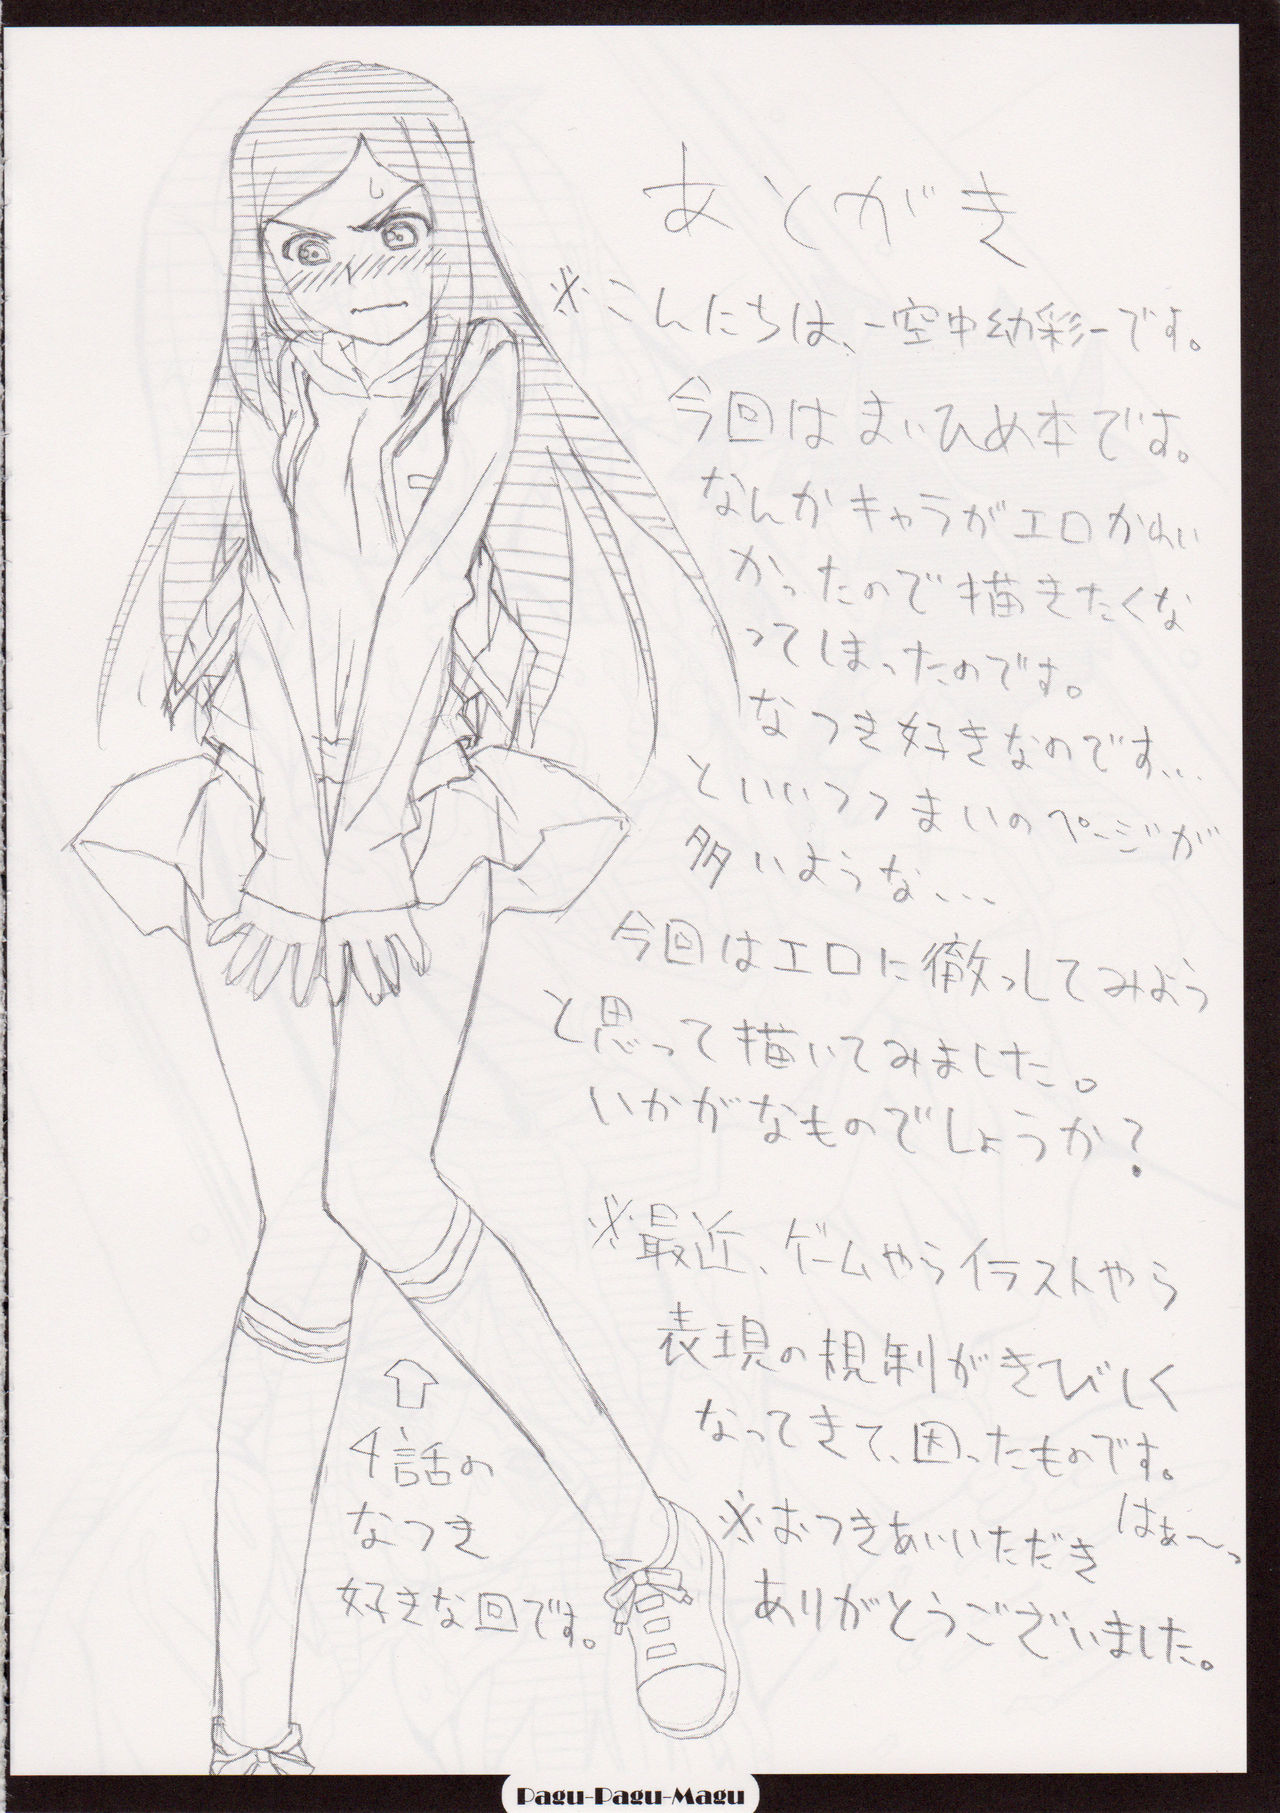 あとがき
※こんにちは、一空中幼彩一です。
今回はまいひめ本です。
なんかキャラがエロかわい
かったので描きたくな
ってしまったのです。
なつき好きなのです...
といいつつまいのページが
多いような...
今回はエロに徹っしてみよう
と思って描いてみました。
いかがなものでしょうか?
※最近、ゲームやらイラストやら
表現の規制がきびしく
なってきて、困ったものです。
はぁ〜っ
※おつきあいいただき
ありがとうございました。
4話の
なつき
好きな回です。
Pagu-Pagu-Magu